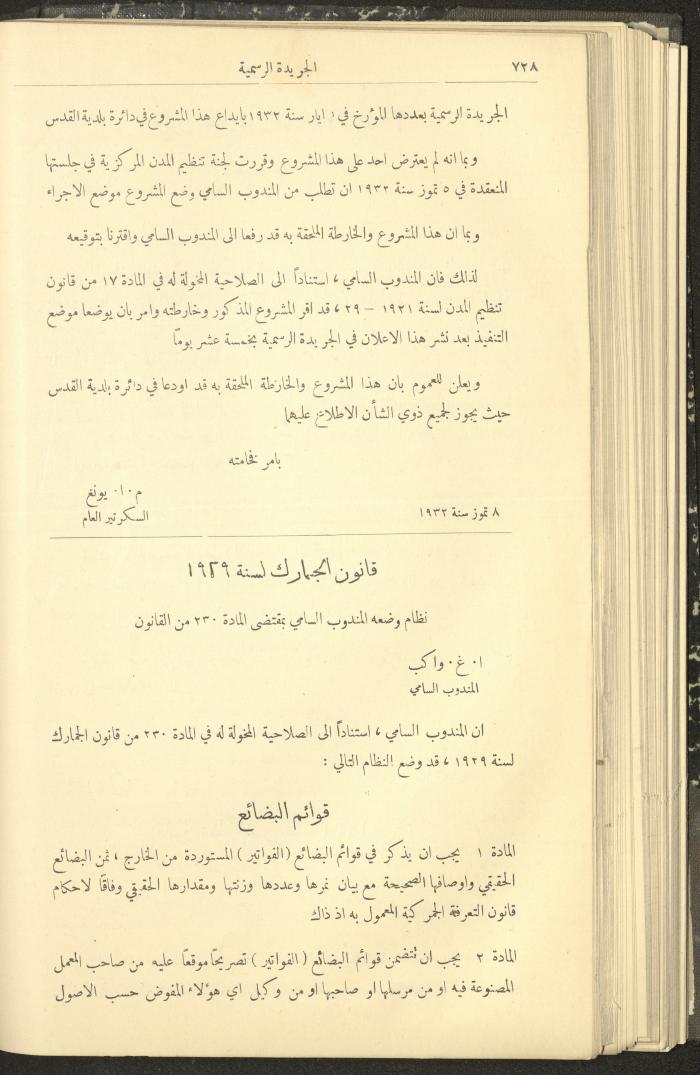 ٧٢٨
الجريدة الرسمية
الجريدة الرسمية بعددها المؤرخ في ١ ايار سنة ١٩٣٢ بايداع هذا المشروع في دائرة بلدية القدس
وبما انه لم يعترض احد على هذا المشروع وقررت لجنة تنظيم المدن المركزية في جلستها
المنعقدة في ٥ تموز سنة ١٩٣٢ ان تطلب من المندوب السامي وضع المشروع موضع الاجراء
وبما ان هذا المشروع والخارطة الملحقة به قد رفعا الى المندوب السامي واقترنا بتوقيعه
لذلك فان المندوب السامي ، استناداً الى الصلاحية المخولة له في المادة ١٧ من قانون
تنظيم المدن لسنة ١٩٢١ – ٢٩ ، قد اقر المشروع المذكور وخارطته وامر بان يوضعا موضع
التنفيذ بعد نشر هذا الاعلان في الجريدة الرسمية بخمسة عشر يوماً
ويعلن للعموم بان هذا المشروع والخارطة الملحقة به قد اودعا في دائرة بلدية القدس
حيث يجوز لجميع ذوي الشأن الاطلاع عليهما
بامر فخامته
م٠ا٠ يونغ
٨ تموز سنة ١٩٣٢ السكرتير العام
قانون الجمارك لسنة ١٩٢٩
نظام وضعه المندوب السامي بمقتضى المادة ٢٣٠ من القانون
ا٠ غ٠ واكب
المندوب السامي
ان المندوب السامي ، استناداً الى الصلاحية المخولة له في المادة ٢٣٠ من قانون الجمارك
لسنة ١٩٢٩ ، قد وضع النظام التالي :
قوائم البضائع
المادة ١ يجب ان يذكر في قوائم البضائع (الفواتير) المستوردة من الخارج ، ثمن البضائع
الحقيقي واوصافها الصحيحة مع بيان نمرها وعددها وزنتها ومقدارها الحقيقي وفاقاً لاحكام
قانون التعرفة الجمركية المعمول به اذ ذاك
المادة ٢ يجب ان تتضمن قوائم البضائع ( الفواتير ) تصريحاً موقعاً عليه من صاحب المعمل
المصنوعة فيه او من مرسلها او صاحبها او من وكيل اي هؤلاء المفوض حسب الاصول